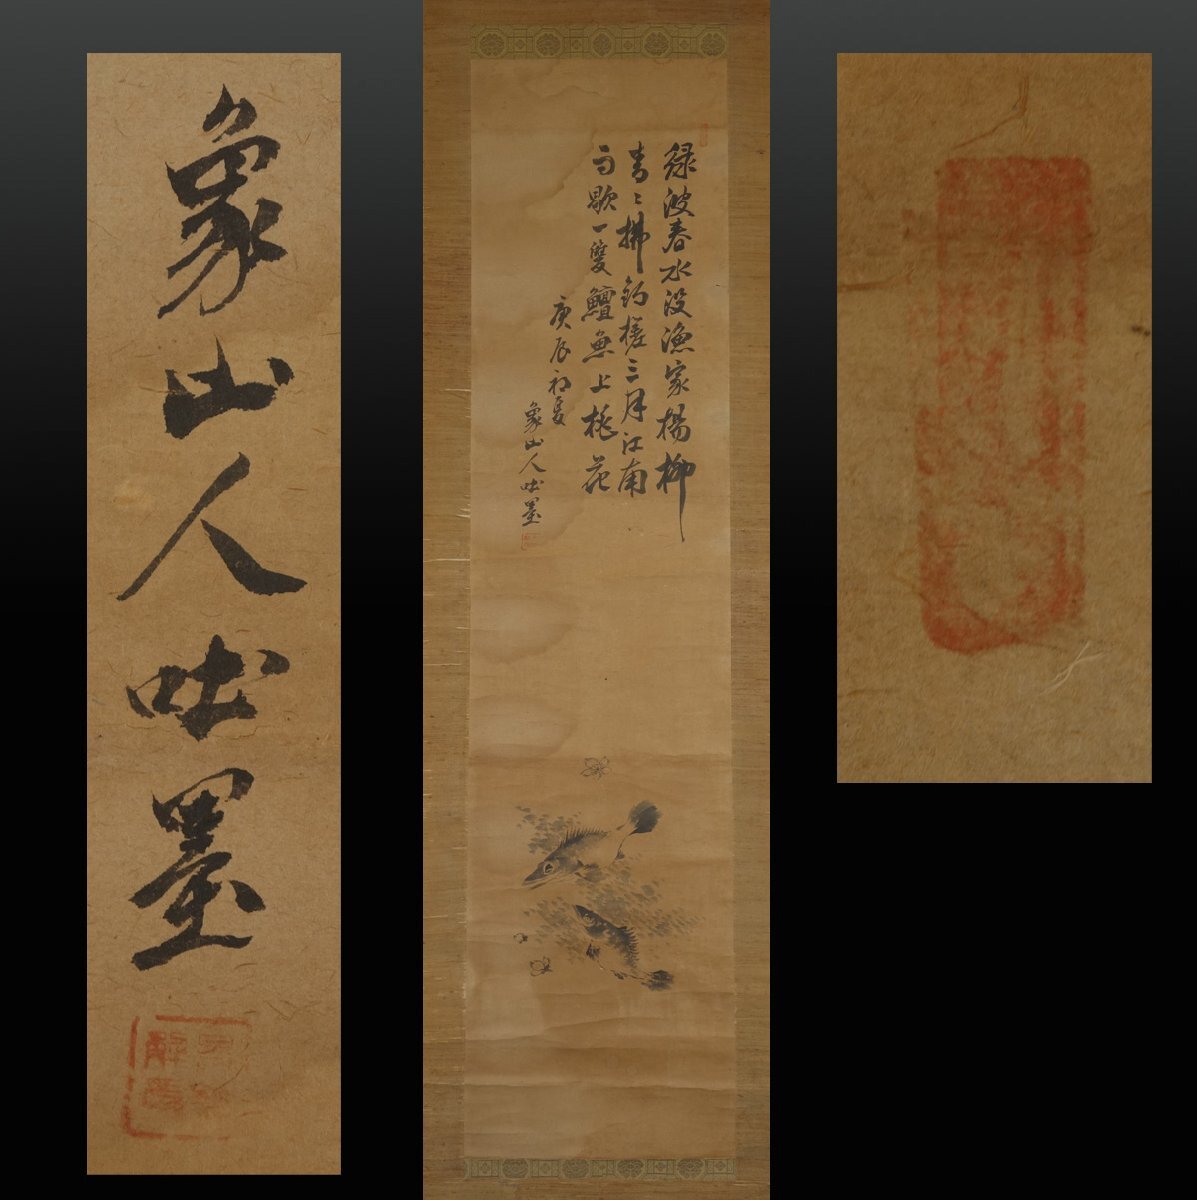 緑波春水没漁家楊柳
青〻拂釣槎三月江南
雨歇一雙鱣魚上桃花
庚辰初夏
象山人吐墨
象山人吐墨